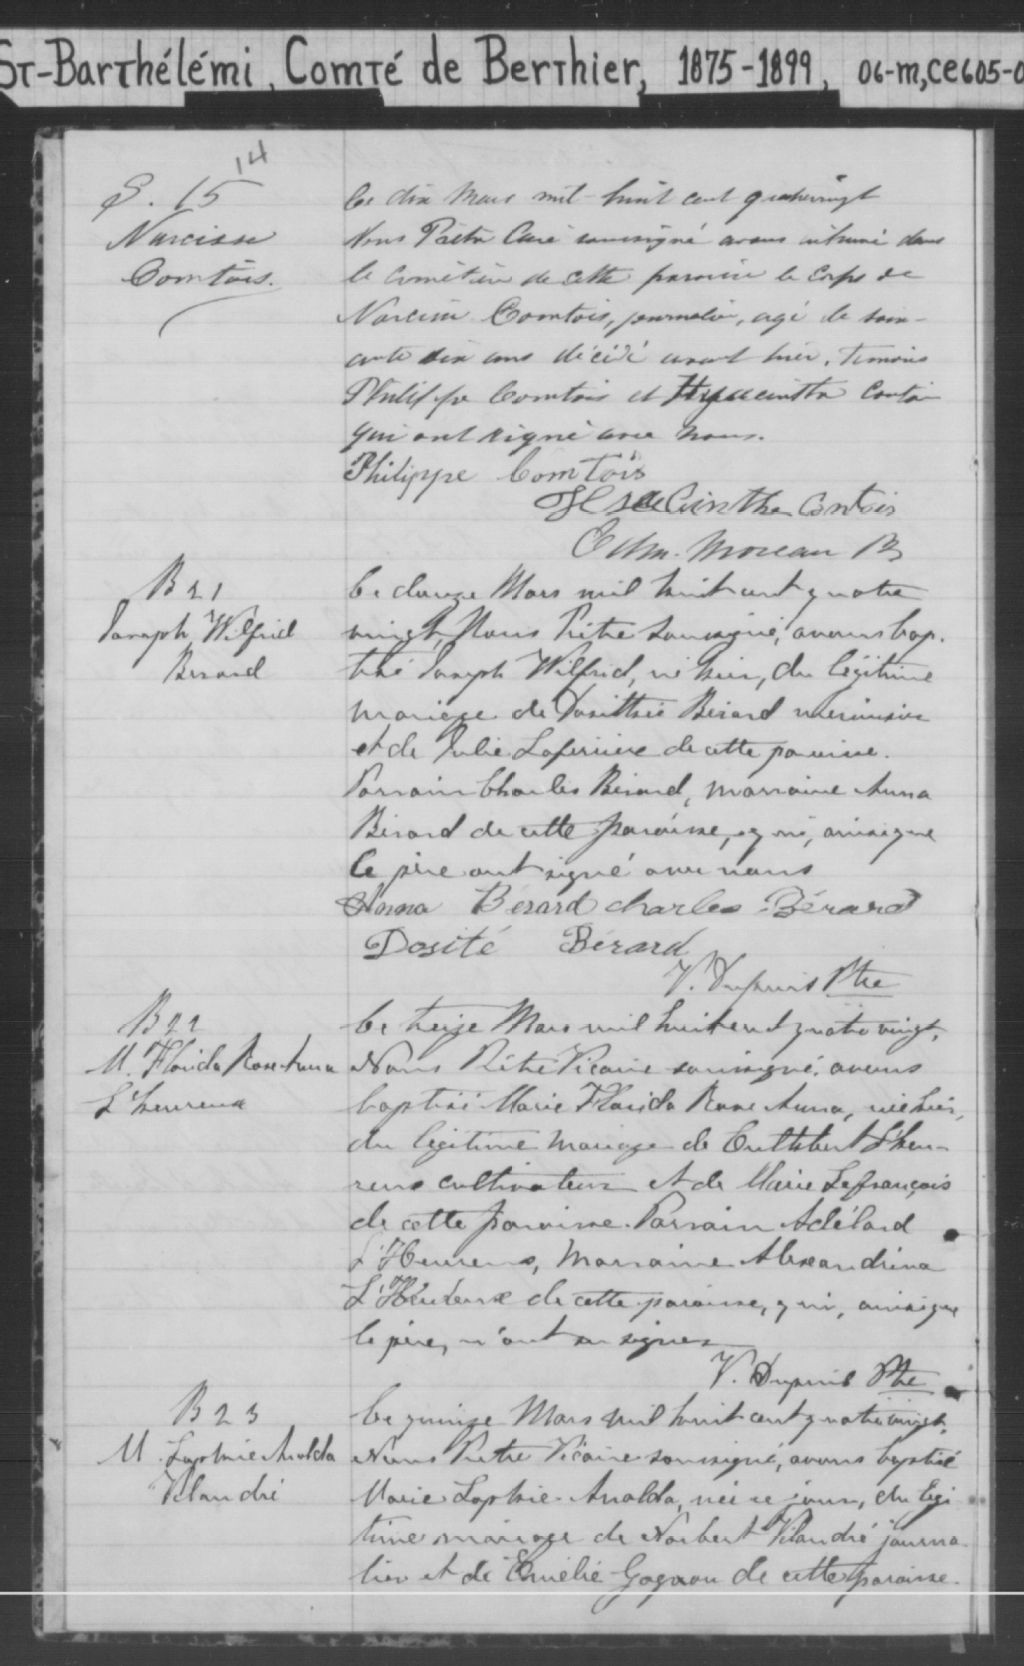 St-Barthélémi, Comté de Berthier, 1875-1899, 06-m,CE605-0
14
S. 15
Narcisse
Comtois.
Ce dix Mars mil-huit cent quatrevingt
Nous Prêtre Curé soussigné avons inhumé dans
le cimetière de cette paroisse le corps de
Narcisse Comtois, journalier, agé de soix-
ante dix ans décédé avant hier. Temoins
Philippe Comtois et Hyacinthe Contois
qui ont signé avec nous.
Philippe Comtois
Hyacinthe Contois
Edm. Moreau
B 21
Joseph Wilfrid
Berard
Le douze Mars mil huit cent quatre
vingt, Nous Prêtre soussigné, avons bap-
tisé Joseph Wilfrid, né hier, du légitime
mariage de Dosithée Bérard menuisier
et de Julie Laferrière de cette paroisse.
Parrain Charles Bérard, marraine Anna
Bérard de cette paroisse, qui, ainsi que
le père ont signé avec nous
Anna Bérard Charles Bérard
Dosité Bérard
V. Dupuis Ptre
B 22
M. Florida Rose Anna
L'heureux
Le treize Mars mil huit cent quatre vingt,
Nous Prêtre Vicaire soussigné, avons
baptisé Marie Florida Rose Anna, née hier,
du légitime mariage de Cuthbert L'heu-
reux cultivateur et de Marie Lefrançois
de cette paroisse. Parrain Adélard
L'Heureux, Marraine Alexandrina
L'Heureux de cette paroisse, qui, ainsi que
le père, n'ont su signer
V. Dupuis Ptre
B 23
M. Sophie Analda
Vilandré
Le quinze Mars mil huit cent quatre vingt,
Nous Prêtre Vicaire soussigné, avons baptisé
Marie Sophie Analda, née ce jour, du légi-
time mariage de Norbert Vilandré journa-
lier et de Emélie Gagnon de cette paroisse.